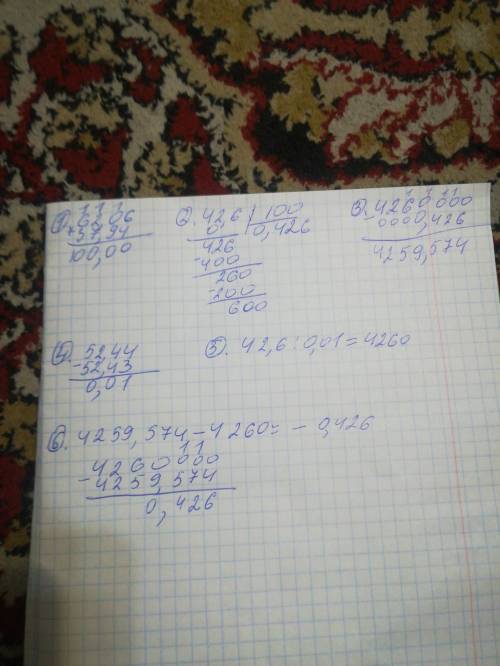 1. 62,06
+37,94
100,00
2. 42,6 | 100
0 0,426
426
-400
260
-200
600
3. 4260,000
-0000,426
4259,574
4. 52,44
-52,43
0,01
5. 42,6:0,01=4260
6. 4259,574-4260=-0,426
4260 000
-4259,574
0,426